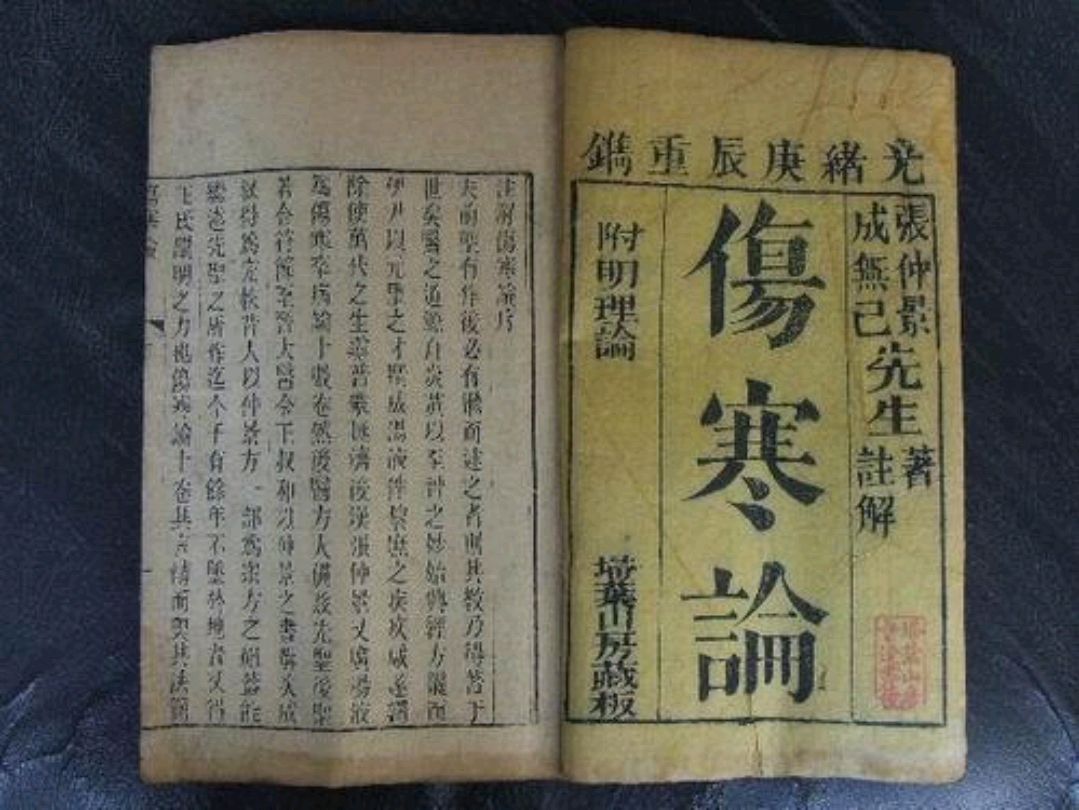 光緒庚辰重鐫
張仲景先生著
成無己先生註解
傷寒論
附明理論
埽葉山房藏板
註解傷寒論序
夫前聖有作後必有繼而述之者則其教乃得著于
世矣醫之道源自炎黃以至神之妙始興經方繼而
伊尹以元聖之才撰成湯液俾黎庶之疾疢咸遂蠲
除使萬代之生靈普蒙拯濟後漢張仲景又廣湯液
為傷寒卒病論十數卷然後醫方大備茲先聖後聖
若合符節至晉太醫令王叔和以仲景之書撰次成
敘得為完秩昔人以仲景方一部為眾方之祖蓋能
繼述先聖之所作迄今千有餘年不墜於地者又得
王氏闡明之力也傷寒論十卷其言精而奧其法簡